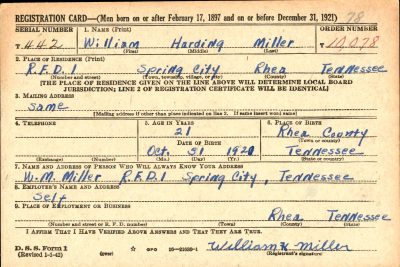 REGISTRATION CARD—(Men born on or after February 17, 1897 and on or before December 31, 1921) 78
SERIAL NUMBER 1. NAME (Print) ORDER NUMBER
T 442 William Harding Miller 10,078
(First) (Middle) (Last)
2. PLACE OF RESIDENCE (Print)
R.F.D. 1 Spring City Rhea Tennessee
(Number and street) (Town, township, village, or city) (County) (State)
[THE PLACE OF RESIDENCE GIVEN ON THE LINE ABOVE WILL DETERMINE LOCAL BOARD
JURISDICTION; LINE 2 OF REGISTRATION CERTIFICATE WILL BE IDENTICAL]
3. MAILING ADDRESS
Same
[Mailing address if other than place indicated on line 2. If same insert word same]
4. TELEPHONE 5. AGE IN YEARS 6. PLACE OF BIRTH
21 Rhea County
DATE OF BIRTH (Town or county)
Oct. 31 1920 Tennessee
(Exchange) (Number) (Mo.) (Day) (Yr.) (State or country)
7. NAME AND ADDRESS OF PERSON WHO WILL ALWAYS KNOW YOUR ADDRESS
W.M. Miller R.F.D. 1 Spring City, Tennessee
8. EMPLOYER'S NAME AND ADDRESS
Self
9. PLACE OF EMPLOYMENT OR BUSINESS
Rhea Tennessee
(Number and street or R. F. D. number) (Town) (County) (State)
I AFFIRM THAT I HAVE VERIFIED ABOVE ANSWERS AND THAT THEY ARE TRUE.
D. S. S. Form 1
(Revised 1-1-42) (over) GPO 16—21630-1 William H Miller
(Registrant's signature)